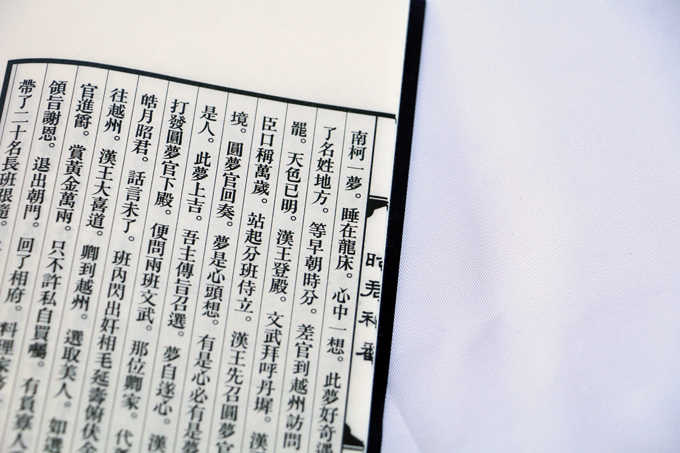 昭君和番
南柯一夢。睡在龍床。心中一想。此夢好奇遇
了名姓地方。等早朝時分。差官到越州訪問
罷。天色已明。漢王登殿。文武拜呼丹墀。
臣口稱萬歲。站起分班侍立。漢王先召圓夢官
境。圓夢官回奏。夢是心頭想。有是心必有是夢
是人。此夢上吉。吾主傳旨召選。夢自遂心。漢
打發圓夢官下殿。便問兩班文武。那位卿家。代
皓月昭君。話言未了。班內閃出奸相毛延壽俯伏金
往越州。漢王大喜道。卿到越州。選取美人。如選
官進爵。賞黃金萬兩。只不許私自買囑。有負寡人
領旨謝恩。退出朝門。回了相府。料理家
帶了二十名長班跟隨。